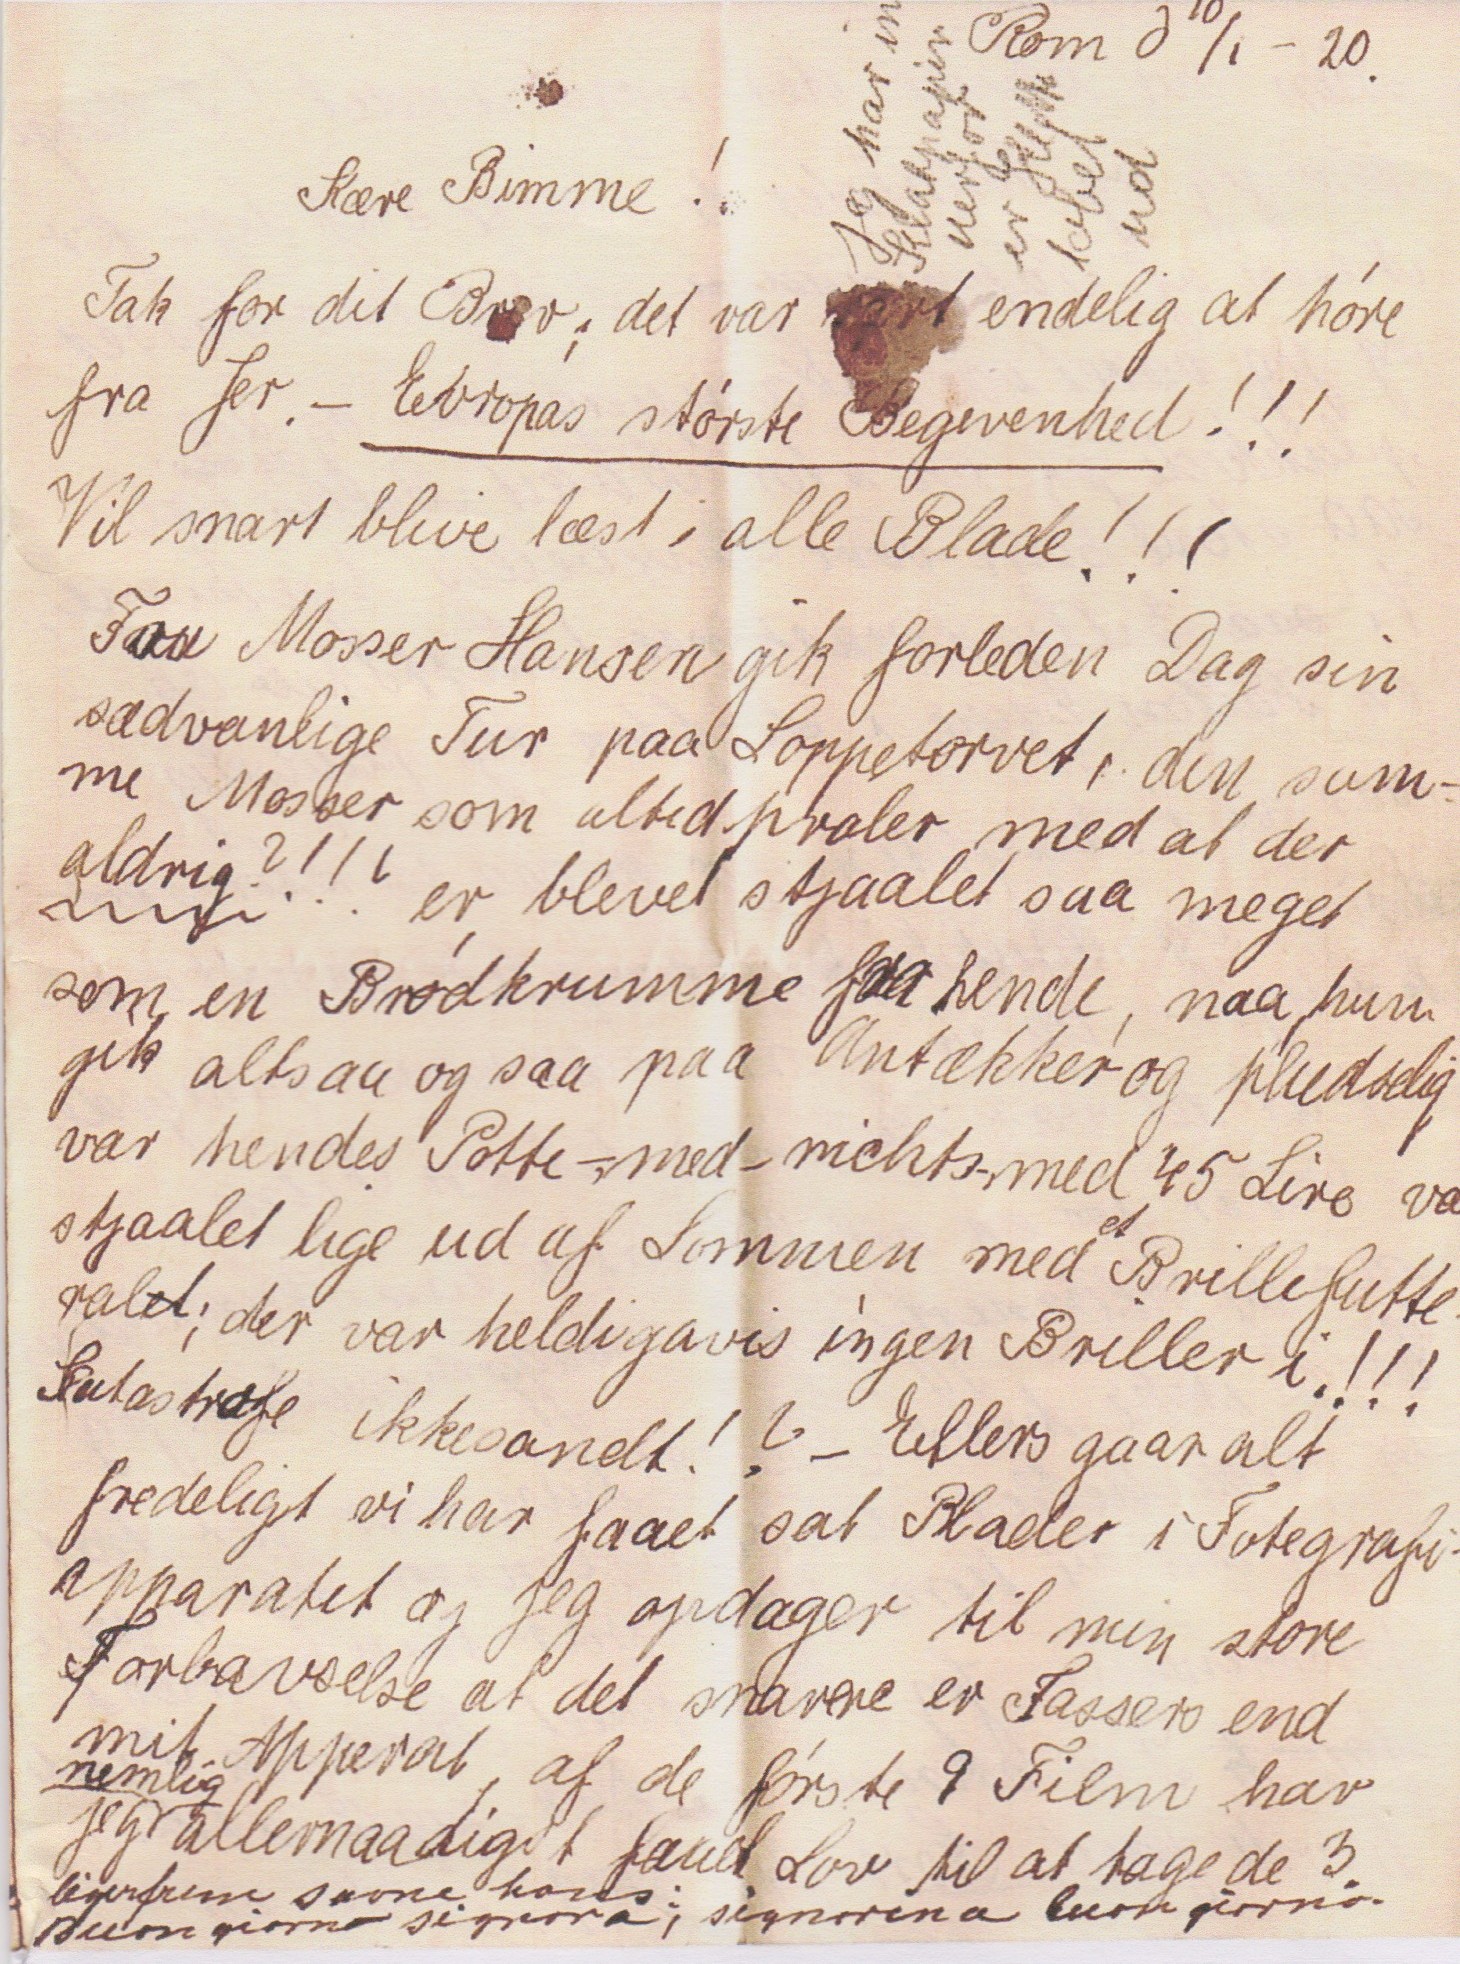 Rom d 10/1 - 20.
Jeg har in
Klatpapir
derfor
er
løbet
ud
Kære Bimme!
Tak for dit Brev, det var rart endelig at høre
fra Jer. - Evropas største Begevenhed!!!
Vil snart blive læst i alle Blade!!!
Fru Mosser Hansen gik forleden Dag sin
sædvanlige Tur paa Loppetorvet, den sam-
me Mosser som altid praler med at der
aldrig?!!! er blevet stjaalet saa meget
som en Brødkrumme fra hende, naa, hun
gik altsaa og saa paa Antækker og pludselig
var hendes Potte-med-nichts-med 45 Lire va
stjaalet lige ud af Lommen med et Brillefutte-
ral; der var heldigavis ingen Briller i!!!
Katastrofe ikkesandt!? - Ellers gaar alt
fredeligt vi har faaet sat Plader i Fotegrafi-
apparatet og jeg opdager til min store
Forbavselse at det snarere er Fassers end
mit Apperat, af de første 9 Film har
jeg nemlig allernaadigst faaet Lov til at tage de 3
ligerfrem savne hans;
Buon giorno signora; signorina buon giorno.